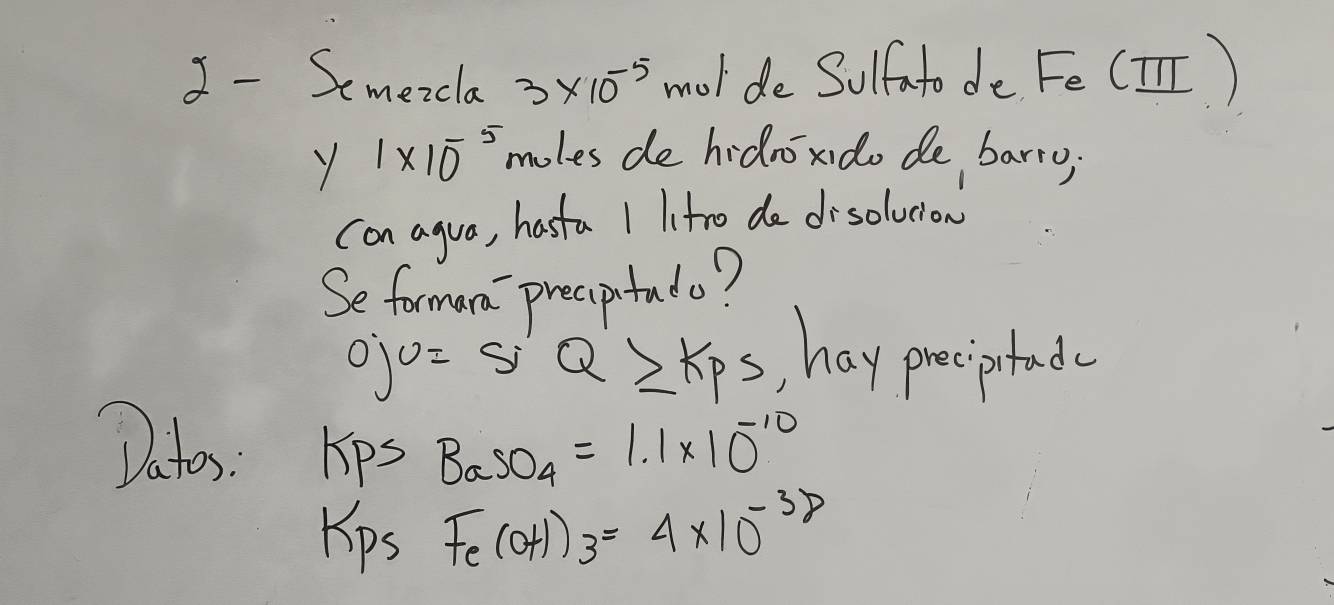 2 - Se mezcla 3x10⁻⁵ mol de Sulfato de Fe (III)
y 1x10⁻⁵ moles de hidróxido de bario;
con agua, hasta 1 litro de disolución
Se formará precipitado?
Ojo= si Q ≥ Kps, hay precipitado
Datos: Kps BaSO₄ = 1.1x10⁻¹⁰
Kps Fe(OH)₃= 4x10⁻³⁸